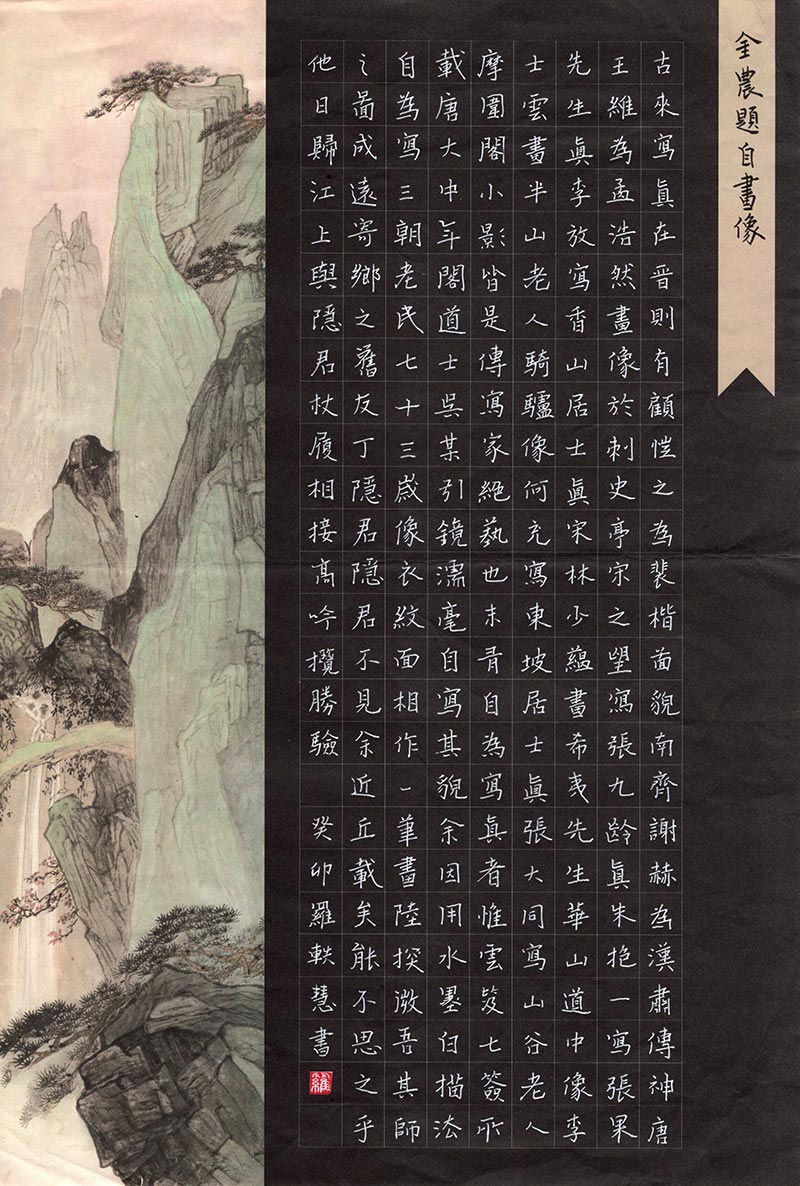 金農題自畫像
古來寫眞在晉則有顧愷之為裴楷面貌南齊謝赫為漢肅傳神唐
王維為孟浩然畫像於刺史亭宋之望寫張九齡眞朱抱一寫張果
先生眞李放寫香山居士眞宋林少蘊畫希夷先生華山道中像李
士雲畫半山老人騎驢像何充寫東坡居士眞張大同寫山谷老人
摩圍閣小影皆是傳寫家絕藝也未有自為寫眞者惟雲笈七籤所
載唐大中年閣道士吳某引鏡濡毫自寫其貌余因用水墨白描法
自為寫三朝老民七十三歲像衣紋面相作一筆畫陸探微吾其師
之圖成遠寄鄉之舊友丁隱君隱君不見余近丘載矣能不思之乎
他日歸江上與隱君杖履相接高吟攬勝驗 癸卯羅軼慧書
羅